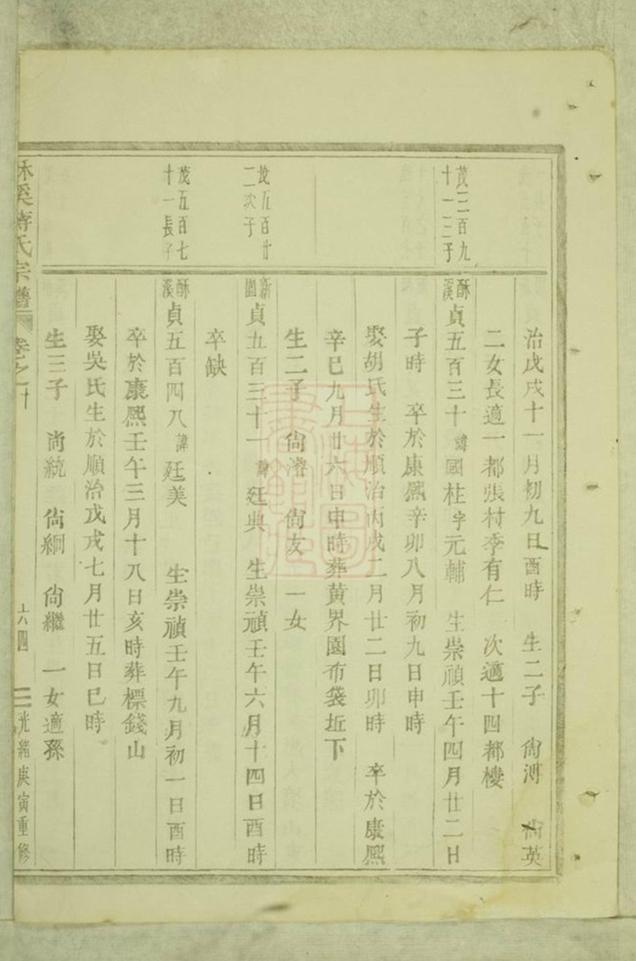 治戊戌十一月初九日酉時 生二子 尙溥 尙英
二女長適一都張村李有仁 次適十四都樓
茂三百九十一三子
酥溪貞五百三十諱國柱字元輔 生崇禎壬午四月廿二日
子時 卒於康熙辛卯八月初九日申時
娶胡氏生於順治丙戌二月廿二日卯時 卒於康熙
辛巳九月廿六日申時葬黃界園布袋坵下
生二子 尙濬 尙友 一女
茂五百廿二次子
新園貞五百三十一諱廷典 生崇禎壬午六月十四日酉時
卒缺
茂五百七十一長子
酥溪貞五百四八諱廷美 生崇禎壬午九月初一日酉時
卒於康熙壬午三月十八日亥時葬標錢山
娶吳氏生於順治戊戌七月廿五日巳時
生三子 尚統 尙綱 尙繼 一女適孫
蔣氏宗譜 卷之十 六四 光緒庚寅重修